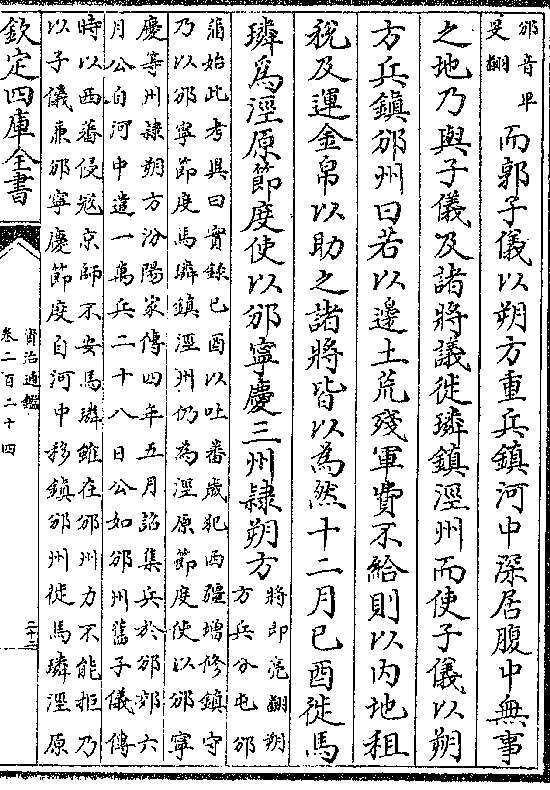 邠音卑
旻翻
而郭子儀以朔方重兵鎮河中深居腹中無事
之地乃與子儀及諸將議徙璘鎮涇州而使子儀以朔
方兵鎮邠州曰若以邊土荒殘軍費不給則以内地租
税及運金帛以助之諸將皆以為然十二月己酉徙馬
璘為涇原節度使以邠寧慶三州隷朔方
將即亮翻朔
方兵分屯邠
蒲始此考異曰實録己酉以吐蕃歲犯西疆增修鎮守
乃以邠寧節度馬璘鎮涇州仍為涇原節度使以邠寧
慶等州隷朔方汾陽家傳四年五月詔集兵於邠郊六
月公自河中遣一萬兵二十八日公如邠州舊子儀傳
時以西蕃侵寇京師不安馬璘雖在邠州力不能拒乃
以子儀兼邠寧慶節度自河中移鎮邠州徙馬璘涇原
欽定四庫全書
資治通鑑
卷二百二十四